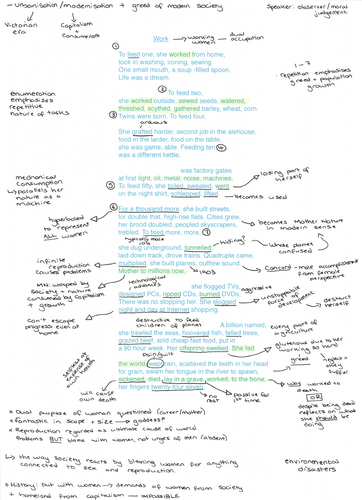 - Urbanisation/modernisation + greed of modern society
Speaker: observer/moral judgement
Victorian era
Capitalism + Consumerism
Work → working women → dual occupation
① To feed one, she worked from home,
took in washing, ironing, sewing.
One small mouth, a soup-filled spoon,
Life was a dream.
② To feed two,
she worked outside, sewed seeds, watered,
threshed, scythed, gathered barley, wheat, corn.
③ Twins were born. To feed four,
She grafted harder, second job in the alehouse,
food in the larder, food on the table,
she was game, able. Feeding ten ④
was a different kettle,
1-7
• repetition emphasises greed + population growth
enumeration emphasises repetitive nature of tasks
was factory gates
at first light, oil, metal, noise, machines.
⑤ To feed fifty, she toiled, sweated, went
on the night shift, schlepped, lifted.
losing part of herself
becomes used
mechanical consumption
↳ parallels her nature as a machine
⑥ For a thousand more, she built streets,
for double that, high-rise flats. Cities grew,
her brood doubled, peopled skyscrapers,
trebled. To feed more, more, ⑦
she dug underground, tunnelled,
laid down track, drove trains. Quadruple came,
multiplied, she built planes, outflew sound.
Mother to millions now,
hyperbole to represent ALL women
becomes Mother Nature in modern sense
hiding?
whole planet confused
infinite reproduction causes problems
MN: whipped by society + nature consumed by capitalism + growth
technological advances
she flogged TVs,
designed PCs, ripped CDs, burned DVDs.
There was no stopping her. She slogged
night and day at internet shopping.
aggressive
destruct herself
Can't escape progress even at home
destructive to feed children of planet
A billion named,
she trawled the seas, hoovered fish, felled trees,
grazed beef, sold cheap fast food, put in
a 90 hour week. Her offspring swelled. She fed
the world, wept rain, scattered the teeth in her head
for grain, swam her tongue in the river to spawn,
sickened, died, lay in a grave, worked, to the bone,
her fingers twenty-four seven.
every part of
gluttonous due to her working so hard
pain/guilt
will cause own death
no rest
passive for 1st time
worked to death
OR
despite being dead reflects on what she should be doing
x Dual purpose of woman questioned (career/mother)
x Fantastic in scope + size → goddess?
x Reproduction regarded as ultimate cause of world problems BUT blame with women, not urges of men (absent)
↳ the way society reacts by blaming women for anything connected to sex and reproduction.
environmental disasters
x History: but with women → demands of women from society + homeland from capitalism → IMPOSSIBLE